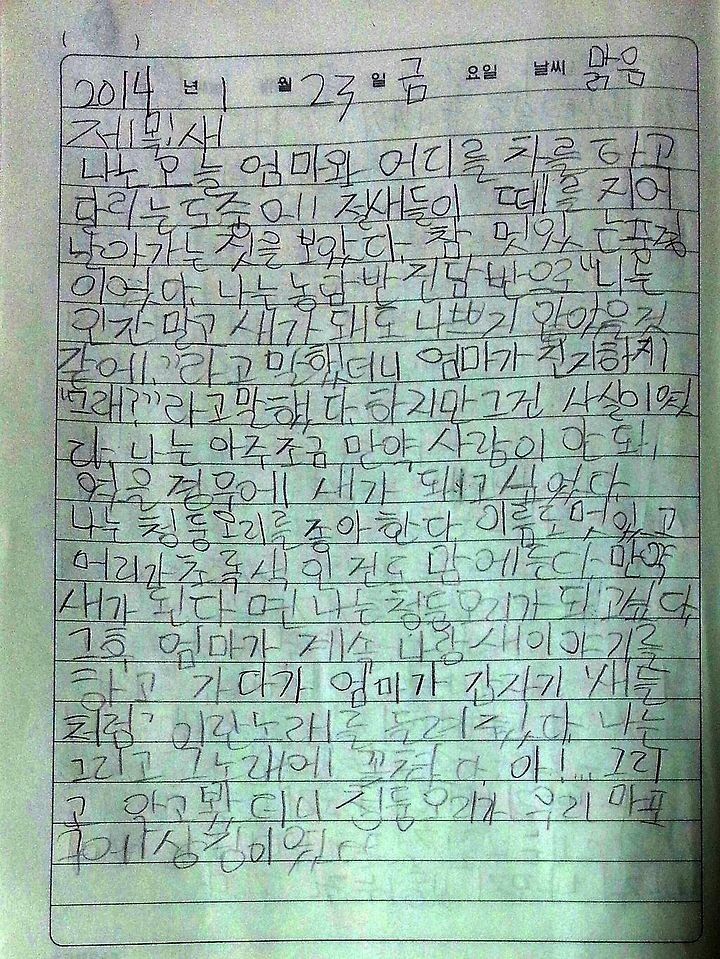 2014 년 1 월 23 일 금 요일 날씨 맑음
제목:새
나는 오늘 엄마와 어디를 차를 타고
달리는 도중에 철새들이 떼를 지어
날아가는 것을 보았다. 참 멋있는 풍경
이였다. 나는 농담 반 진담 반으로 "나는
인간 말고 새가 돼도 나쁘기 않았을것
같에."라고 말했더니 엄마가 진지하게
"그래?"라고 말했다. 하지만 그건 사실이였
다. 나는 아주 조금 만약, 사람이 안 돼,
였을 경우에 새가 되고 싶었다.
나는 청둥오리를 좋아한다. 이름도 멋있고
머리가 초록색 인 것도 맘에든다. 만약
새가 된다면 나는 청둥오리가 되고싶다.
그후, 엄마가 계속 나랑 새이야기를
하고 가다가 엄마가 갑자기 '새들
처럼' 이란 노래를 들려주었다. 나는
그리고 그노래에 꽂혔다. 아!... 그리
고 알고 봤더니 청둥오리가 우리 마포
구에 상징이었다